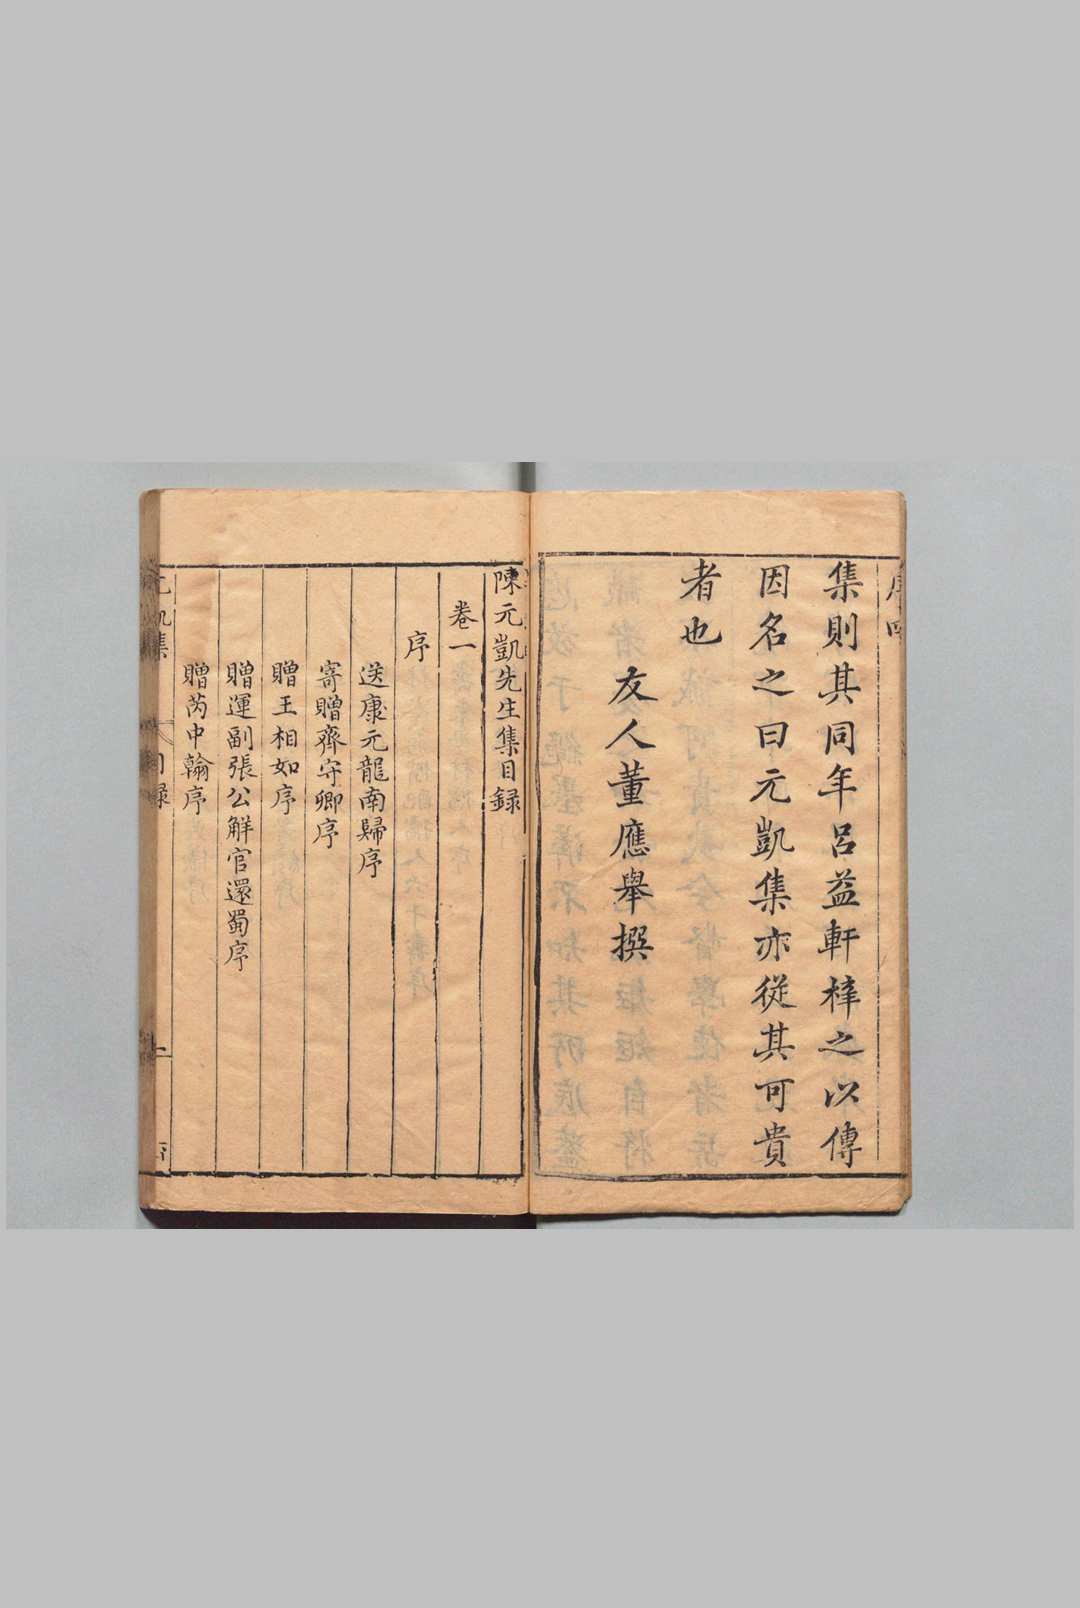 集則其同年呂益軒梓之以傳
因名之曰元凱集亦從其可貴
者也
友人董應舉撰
陳元凱先生集目録
卷一
序
送康元龍南歸序
寄贈齊守卿序
贈王相如序
贈運副張公解官還蜀序
贈芮中翰序